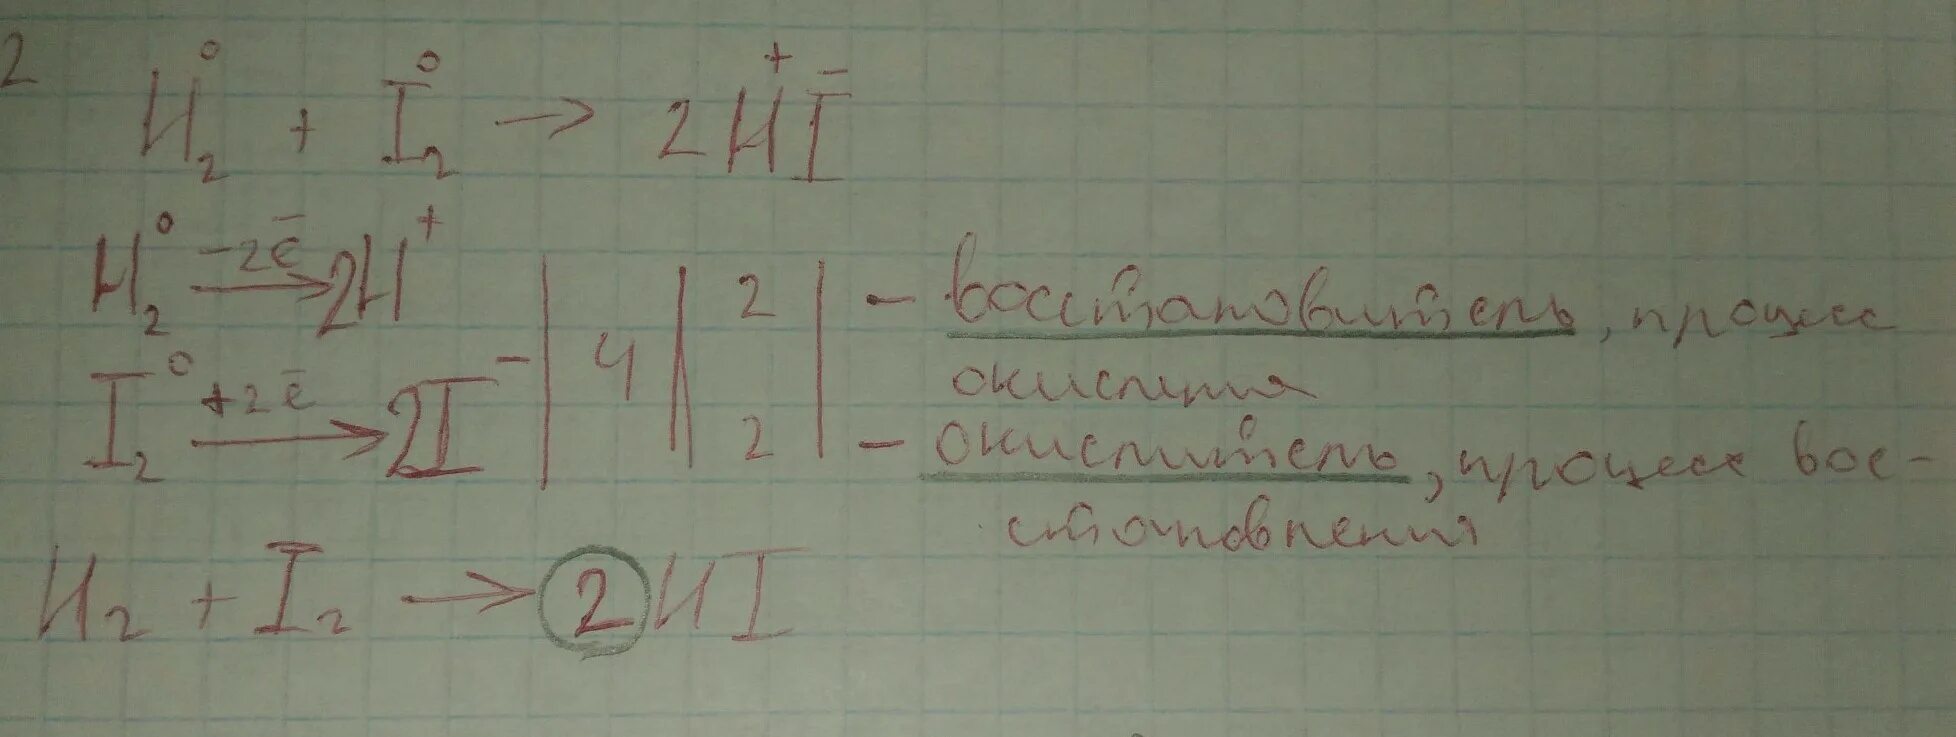 2
H₂⁰ + I₂⁰ → 2H⁺I⁻
H₂⁰ −2ē → 2H⁺ | 4 | 2 | – восстановитель, процесс
окисления
I₂⁰ +2ē → 2I⁻ | 2 | – окислитель, процесс вос-
становления
H₂ + I₂ → 2HI